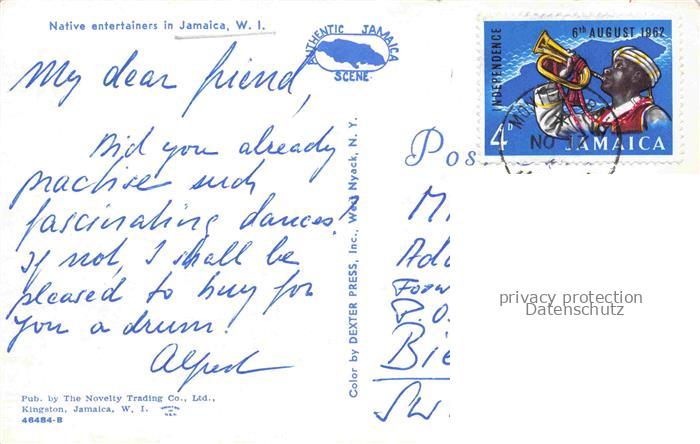 Native entertainers in Jamaica, W. I.
AUTHENTIC JAMAICA
SCENE
My dear friend,
Did you already
practise such
fascinating dances?
If not, I shall be
pleased to buy for
you a drum!
Alfred
Pub. by The Novelty Trading Co., Ltd.,
Kingston, Jamaica, W. I.
46484-B
Color by DEXTER PRESS, Inc., West Nyack, N. Y.
INDEPENDENCE
6th AUGUST 1962
4D
JAMAICA
NO
Pos
M
Ad
P.O.
Bie
Sw.
privacy protection
Datenschutz